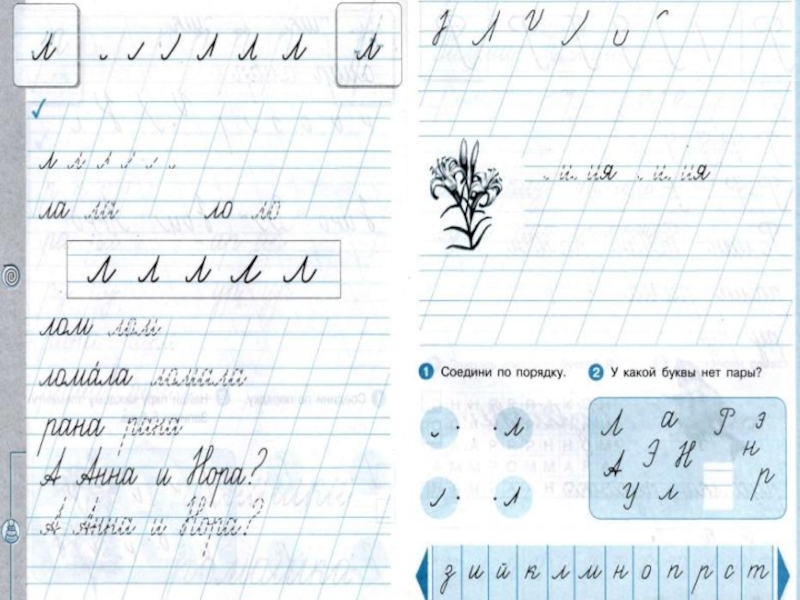 л л л
л л л л
ла ла ло ло
л л л л л
лом лом
лома́ла ломала
рана рана
А Анна и Нора?
А Анна и Нора?
л
лилия лилия
1 Соедини по порядку.
2 У какой буквы нет пары?
л
л
Л а Р э
А Э Н н
У л р
з и й к л м н о п р с т